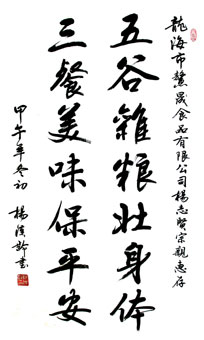 龍海市鱀晟食品有限公司楊志賢宗親惠存
五谷雜粮壯身体
三餐美味保平安
甲午年冬初
楊溪龄书